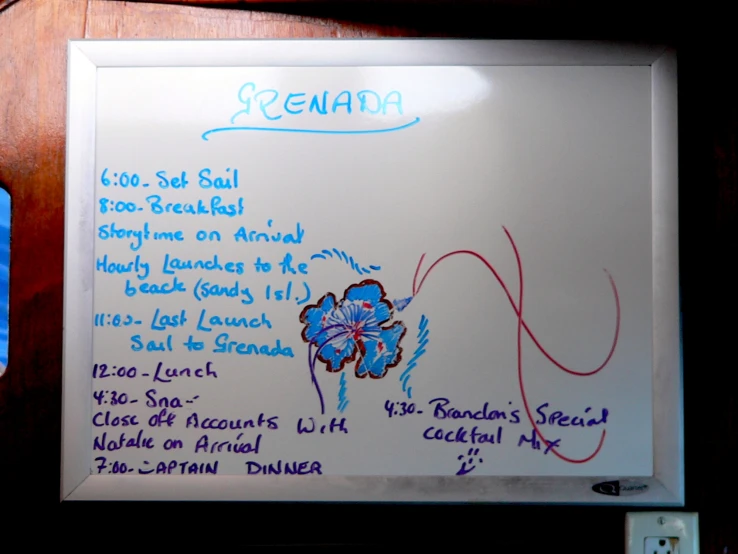 GRENADA
6:00- Set Sail
8:00- Breakfast
Storytime on Arrival
Hourly Launches to the
beach (Sandy Isl.)
11:00- Last Launch
Sail to Grenada
12:00- Lunch
4:30- Sna
Close off Accounts With
Natalie on Arrival
7:00- CAPTAIN DINNER
4:30- Brandon's Special
Cocktail Mix